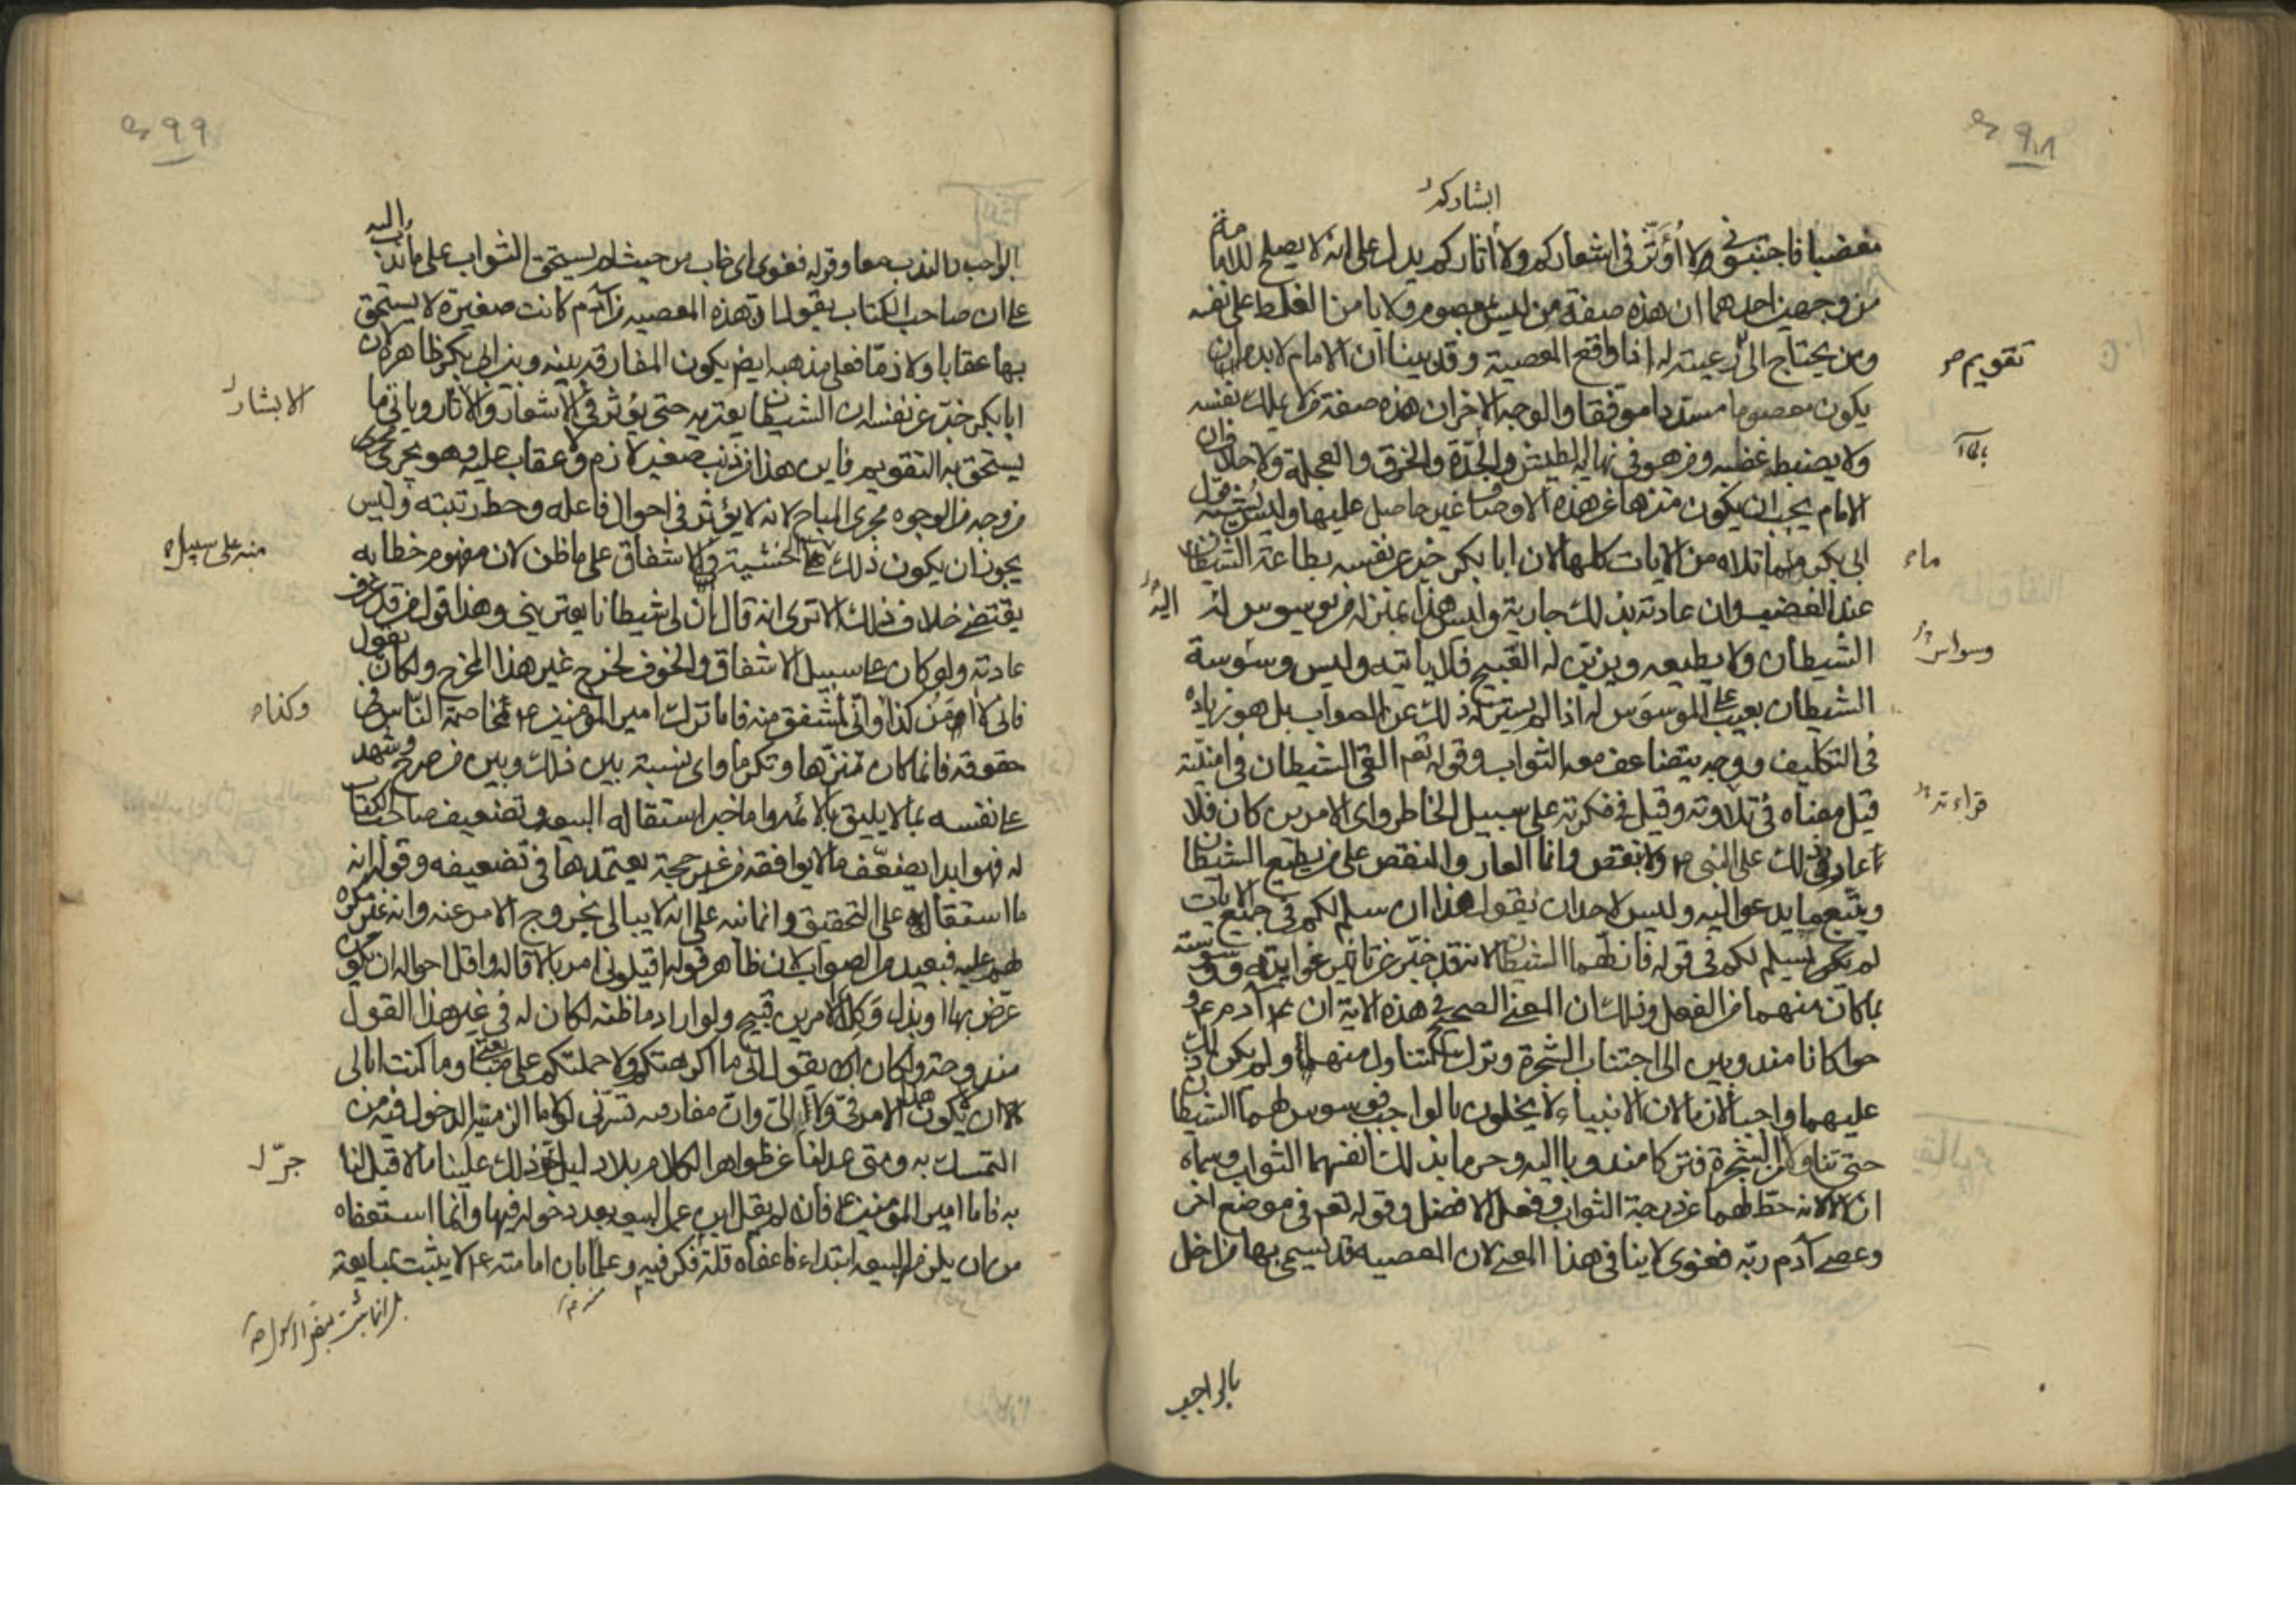 ٩٨
ابشاركم
مغضبا فاجتنبوني ولا أؤثر في اشعاركم ولا اثاركم يدل على انه لا يصلح للامامة
من وجهين احدهما ان هذه صفة من ليس بمعصوم ولا يامن الغلط على نفسه
ومن يحتاج الى رعيته له اذا واقع المعصية وقد بينا ان الامام لا بد ان
تقويم
يكون معصوما مسددا موفقا والوجه الاخر ان هذه صفة من لا يملك نفسه
ولا يضبط غضبه ومن هو في نهاية الطيش والحدة والخرق والعجلة ولا خلاف ان
الامام يجب ان يكون منزها عن هذه الاوصاف غير حاصل عليها وليس يشبه قول
ابي بكر ما تلاه من الايات كلها لان ابا بكر خبر عن نفسه بطاعة الشيطان
عند الغضب وان عادته بذلك جارية وليس هذا بمنزلة من يوسوس له
اليه
الشيطان ولا يطيعه ويزين له القبيح فلا ياتيه وليس وسوسة
وسواس
الشيطان بعيب على الموسوس له اذا لم يستزله ذلك عن الصواب بل هو زيادة
في التكليف ووجه يتضاعف معه الثواب وقوله تعم القى الشيطان في امنيته
قيل معناه في تلاوته وقيل في فكرته على سبيل الخاطر واي الامرين كان فلا
قراءته
عار في ذلك على النبي ص ولا نقص وانما العار والنقص على من يطيع الشيطان
ويتبع ما يدعو اليه وليس لاحد ان يقول هذا ان سلم لكم في جميع الايات
لم يسلم لكم في قوله فازلهما الشيطان لانه قد خبر عن تاثير غوايته ووسوسته
بما كان منهما من الفعل وذلك ان المعنى الصحيح في هذه الاية ان ادم و
حوا كانا مندوبين الى اجتناب الشجرة وترك التناول منها ولم يكن ذلك
عليهما واجبا لازما لان الانبياء لا يخلون بالواجب فوسوس لهما الشيطان
حتى تناولا من الشجرة فتركا مندوبا اليه وحرما بذلك انفسهما الثواب وسماه
ازلالا لانه حط لهما عن درجة الثواب وفعل الافضل وقوله تعم في موضع اخر
وعصى آدم ربه فغوى لا ينافي هذا المعنى لان المعصية قد يسمى بها من اخل
بالواجب
٩٩
الواجب والندب معا وقوله فغوى اى خاب من حيث لم يستحق الثواب على ما ندب اليه
على ان صاحب الكتاب يقول ان هذه المعصية من آدم كانت صغيرة لا يستحق
بها عقابا ولا ذما فعلى مذهبه ايض يكون المفارقة بينه وبين ابي بكر ظاهرة لان
ابا بكر خبر عن نفسه ان الشيطان يعتريه حتى يؤثر في الاشعار والاثار وياتى ما
الابشار
يستحق به التقويم فاين هذا من ذنب صغير لا ذم ولا عقاب عليه وهو يجرى مجرى
من وجه من الوجوه مجرى المباح لانه لا يؤثر في احوال فاعله وحط رتبته وليس
يجوز ان يكون ذلك على الخشية والاشفاق على ما ظن لان مفهوم خطابه
منه على سبيل
يقتضي خلاف ذلك الا ترى انه قال ان لي شيطانا يعتريني وهذا قول من قد عرف
عادته ولو كان على سبيل الاشفاق والخوف لخرج غير هذا المخرج ولكان يقول
فانى لا آمن كذا وانى لمشفق منه فاما ترك امير المؤمنين ع مخاصمة الناس في
وكذا
حقوقه فانما كان تنزها وتكرما واى نسبة بين ذلك وبين من صرح وشهد
على نفسه بما لا يليق بالائمه واما خبر استقاله البيعه وتضعيف صاحب الكتاب
له فهو ابدا يضعف ما لا يوافقه من غير حجة يعتمدها في تضعيفه وقوله انه
ما استقال على التحقيق وانما نبه على انه لا يبالى بخروج الامر عنه وانه غير مكره
لهم عليه فبعيد من الصواب لان ظاهر قوله اقيلونى امر بالاقالة واقل احواله ان يكون
عرض بها او بذل وكلا الامرين قبيح ولو اراد ما ظنه لكان له في غير هذا القول
مندوحة ولكان يقول انى ما اكرهتكم ولا حملتكم على مبايعتى وما كنت ابالى
الا يكون هذا الامر فيّ ولا الى وان مفارقته تسرنى لولا ما الزمنيه الدخول فيه من
التمسك به ومتى عدلنا عن ظواهر الكلام بلا دليل جر ذلك علينا ما لا قبل لنا
جرّ
به فاما امير المؤمنين ع فانه لم يقل ابن عمر البيعه بعد دخوله فيها وانما استعفاه
من ان يلزمه البيعه ابتداء فاعفاه قلة فكر فيه وعلما بان امامته ع لا يثبت بمبايعة